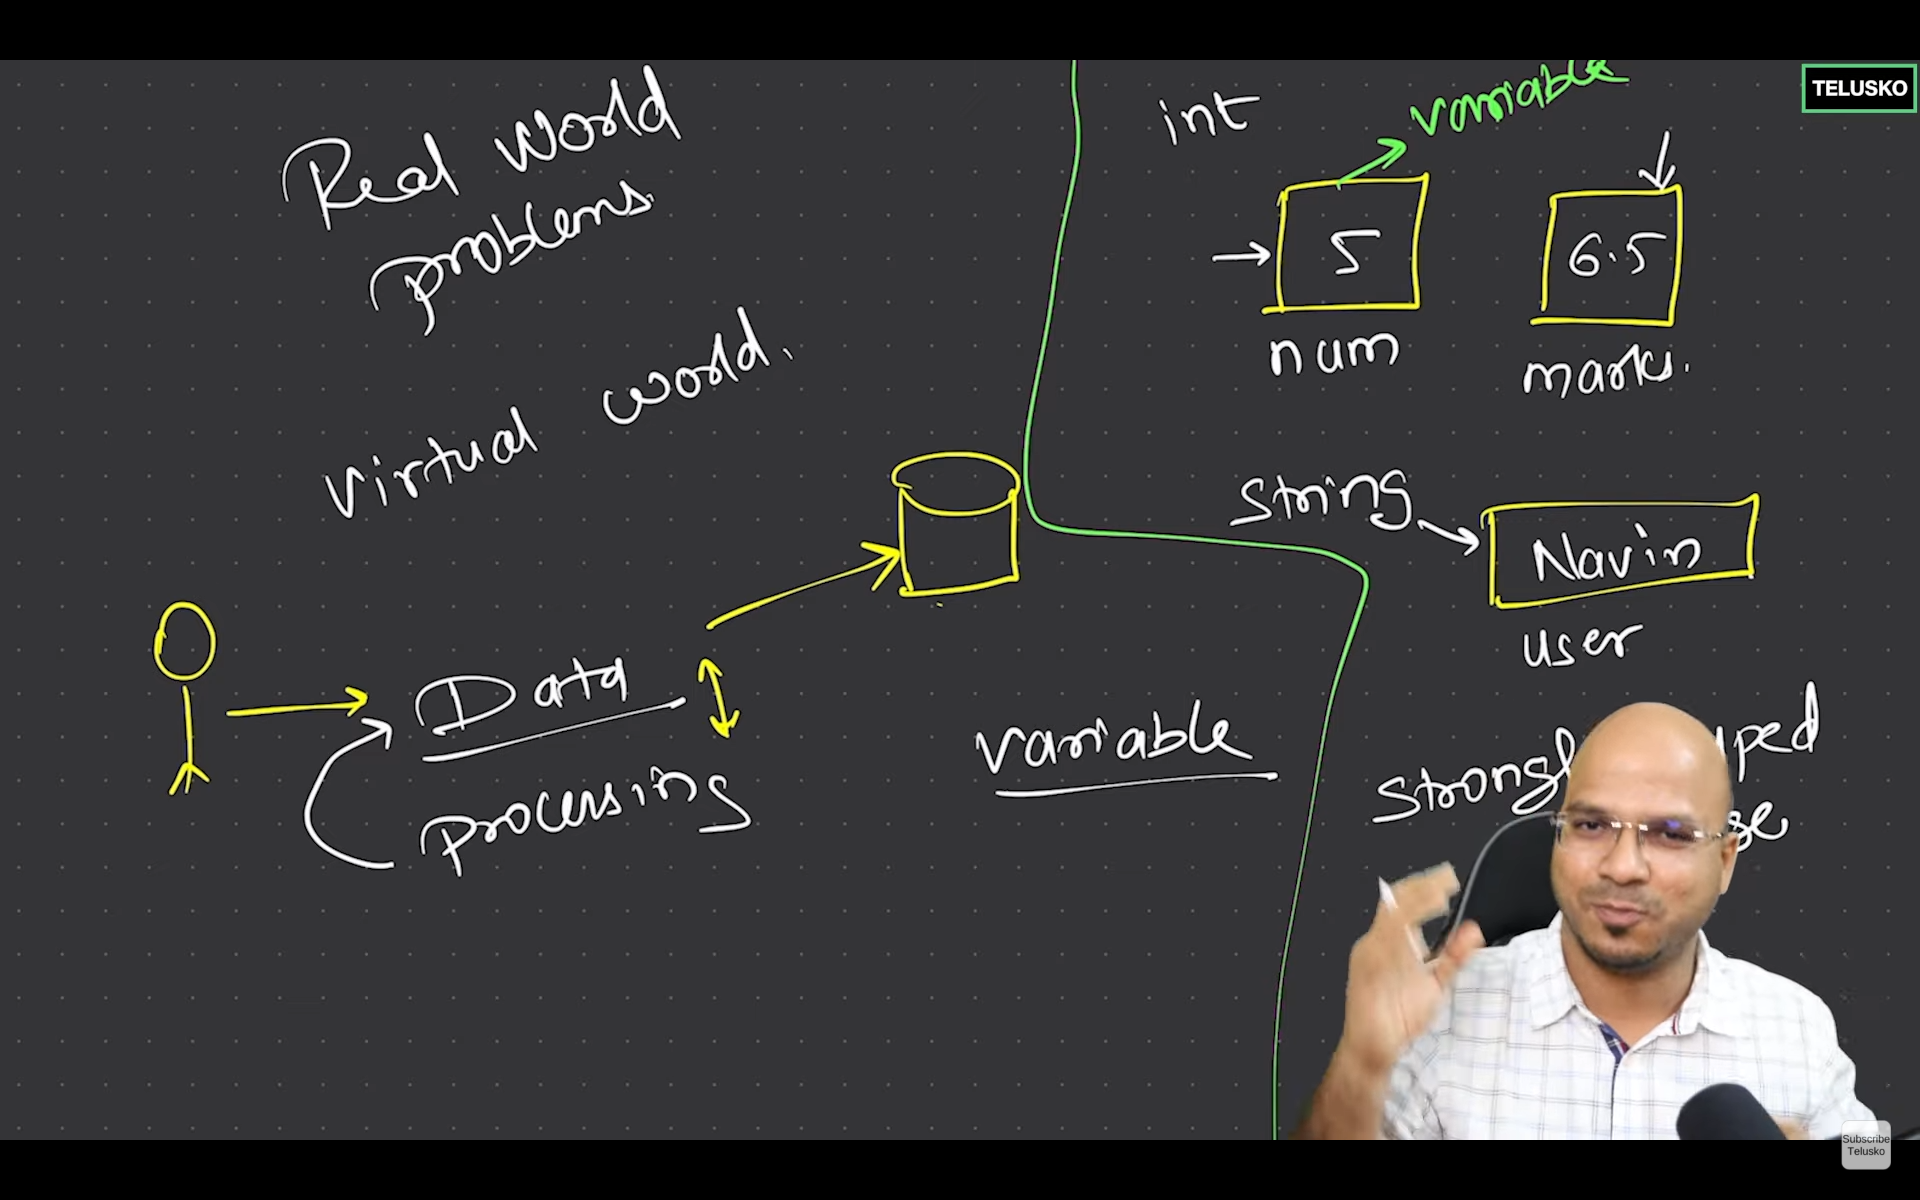 Real world
problems.
virtual world.
Data
processing
variable
int
variable
5
num
6.5
marks.
String
Navin
user
TELUSKO
Subscribe
Telusko